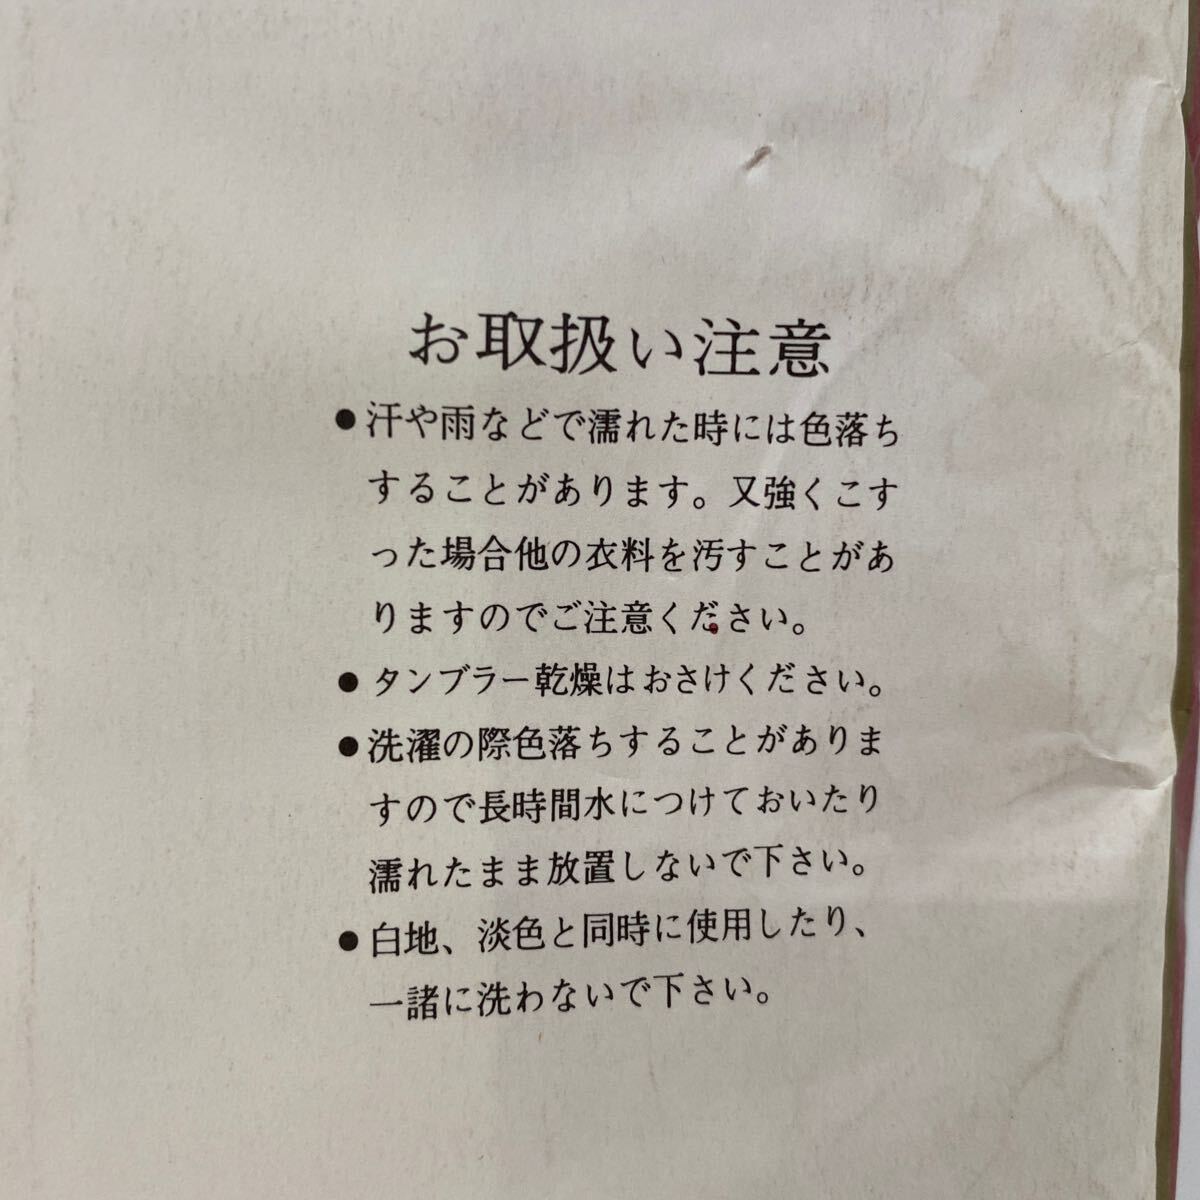 お取扱い注意
●汗や雨などで濡れた時には色落ち
することがあります。又強くこす
った場合他の衣料を汚すことがあ
りますのでご注意ください。
●タンブラー乾燥はおさけください。
●洗濯の際色落ちすることがありま
すので長時間水につけておいたり
濡れたまま放置しないで下さい。
●白地、淡色と同時に使用したり、
一諸に洗わないで下さい。